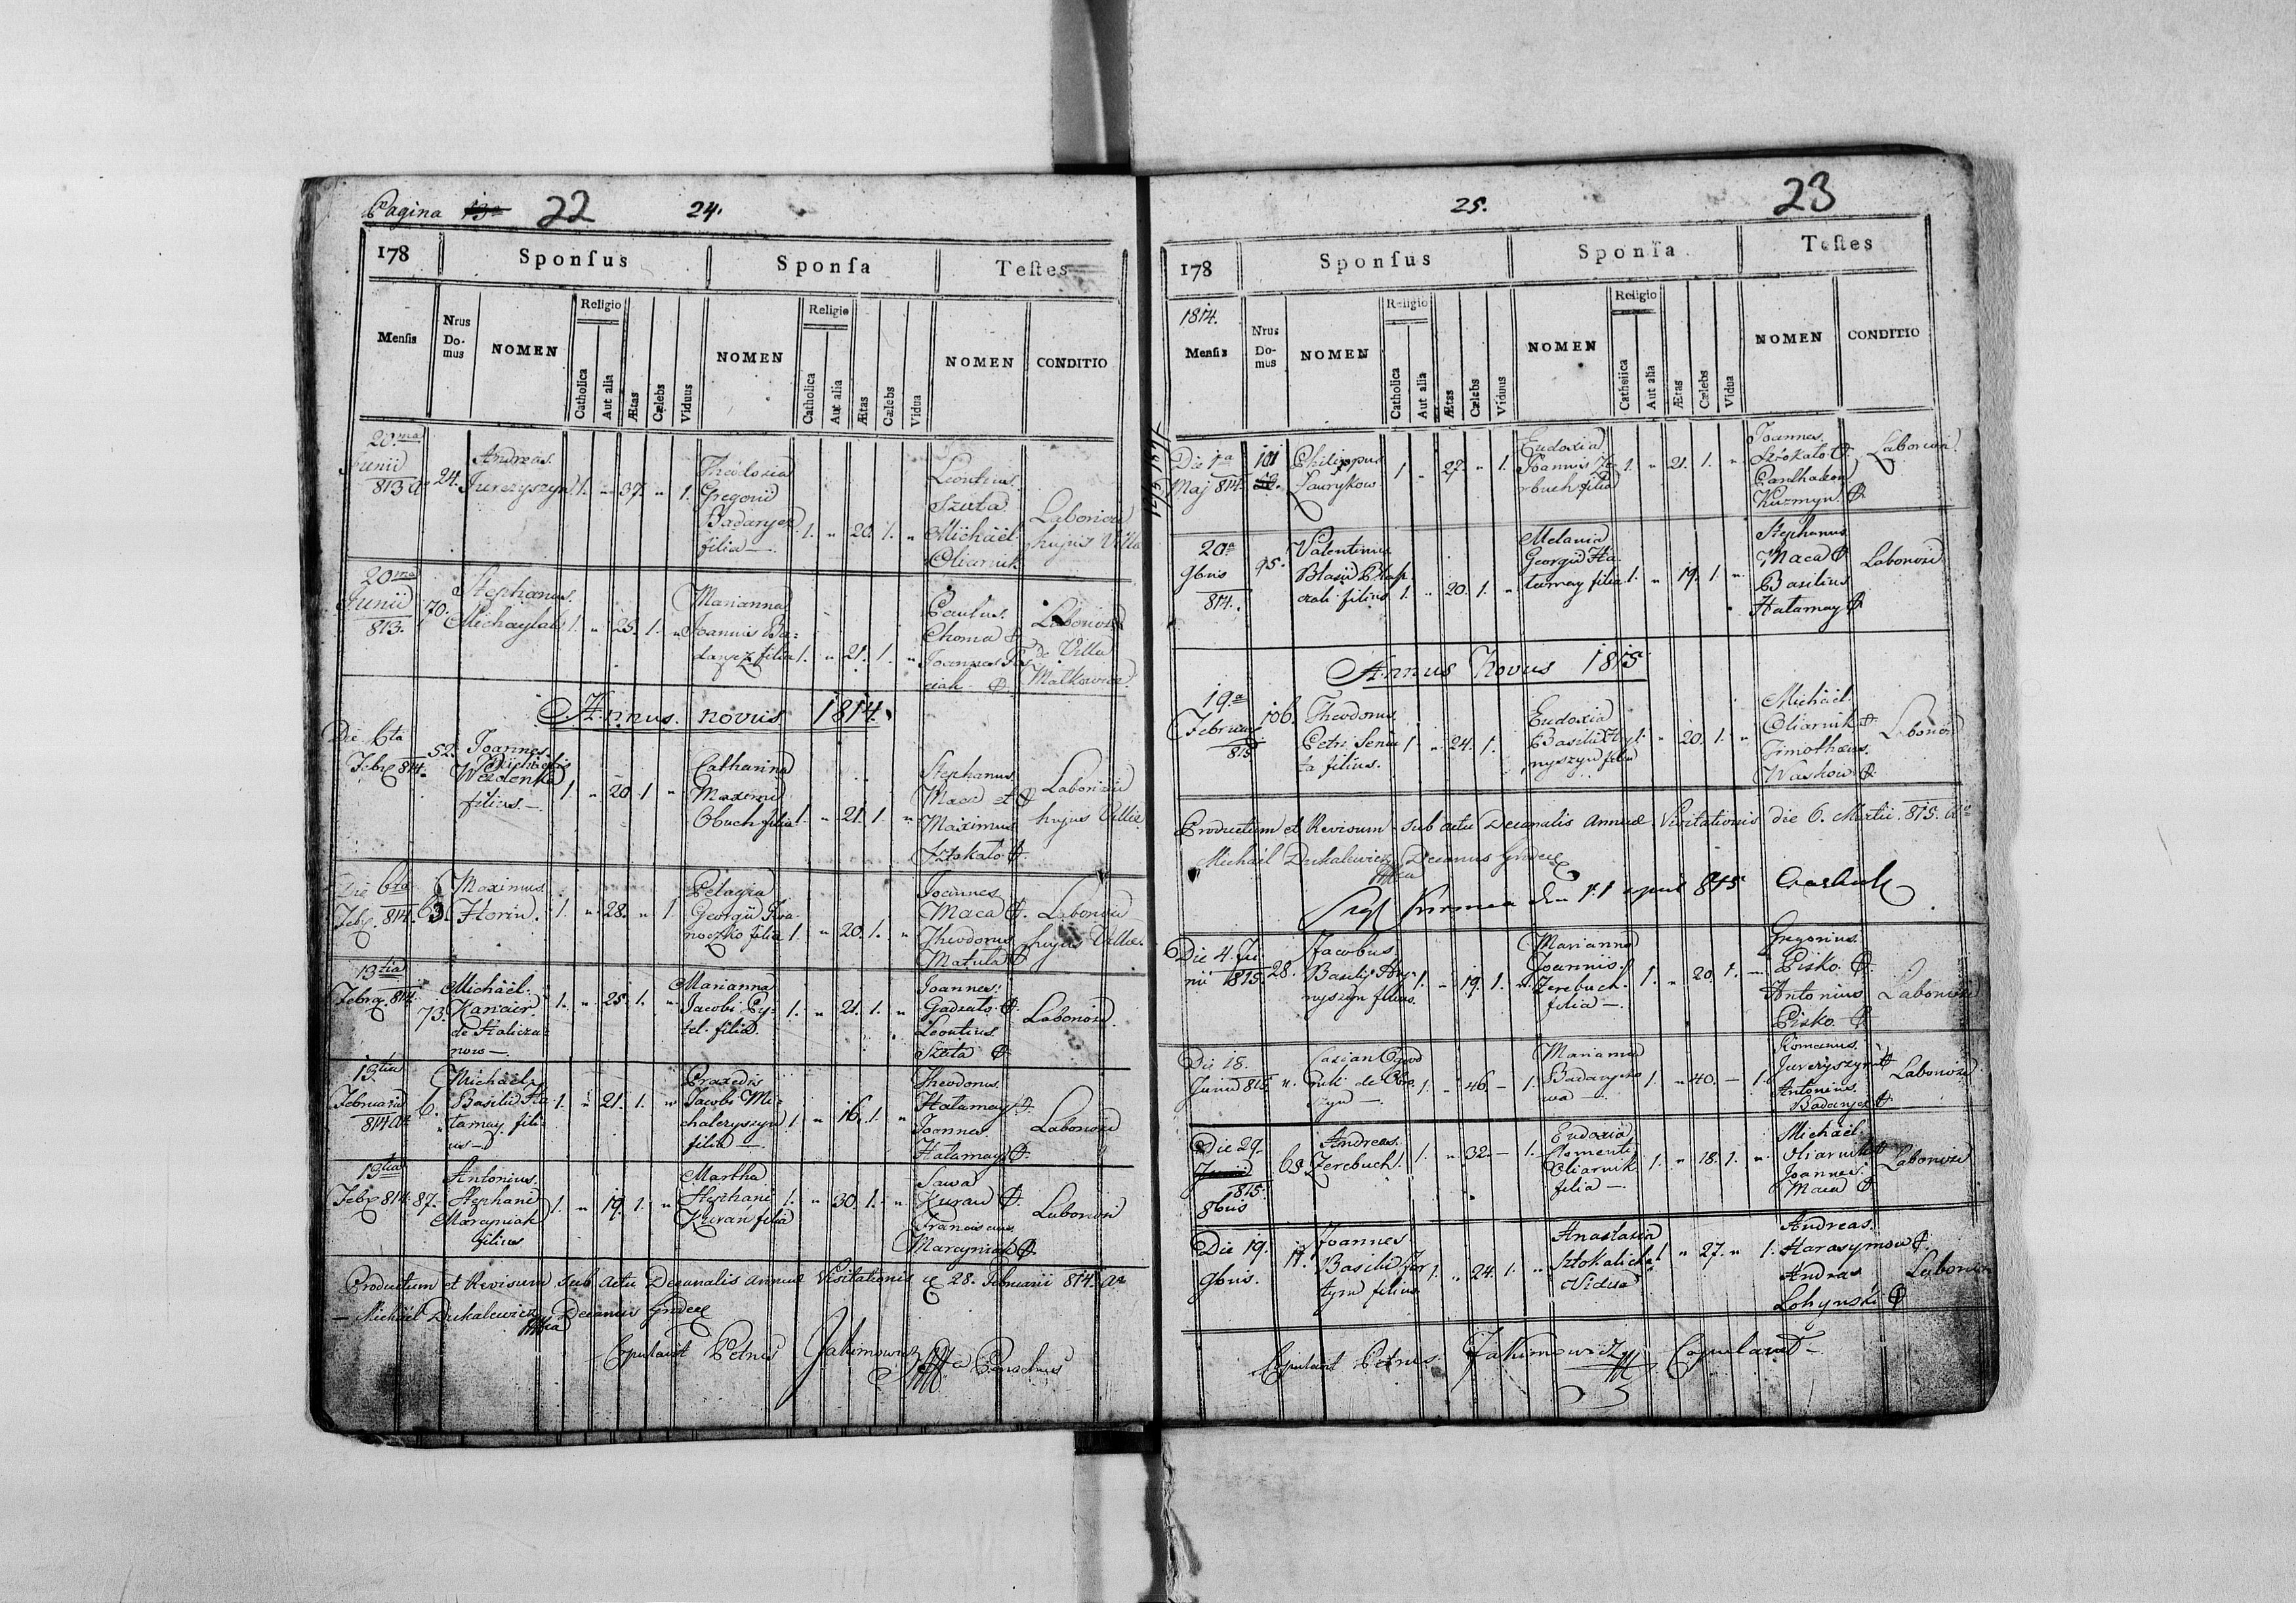 Pagina 13 22 24.
178 Sponsus Sponsa Testes
Mensis Nrus Domus NOMEN Religio Catholica Aut alia Ætas Cælebs Viduus NOMEN Religio Catholica Aut alia Ætas Cælebs Vidua NOMEN CONDITIO
20ma Junii 813 Ao 24.
Andreas
Jurczyszyn 1. " 37. " 1.
Theodosia
Gregorii
Badanycz
filia — 1. " 20. 1. "
Leontius
Szuta
Michäel
Oliarnik
Laboriosi
hujus Villa
20ma Junii 813. 70.
Stephanus
Michaylak 1. " 25. 1. "
Marianna
Joannis Ba-
danycz filia 1. " 21. 1. "
Paulus
Choma
Joannes
Laboriosi
de Villa
Malkowice
Annus novus 1814.
Die 6ta
Febr 814. 52.
Joannes
filius — 1. " 20. 1 "
Catharina
Maximi
Obuch filia 1. " 21. 1. "
Stephanus
Maca et
Maximus
Sztokalo
Laboriosi
hujus Villæ
Die 6ta
Feb. 814. 63.
Maximus
Horin. 1. " 28. " 1.
Pelagia
Georgii Iwa-
noczko filia 1. " 20. 1. "
Joannes
Maca
Theodorus
Matula
Laboriosi
hujus Villæ.
13tia
Febr 814. 73.
Michäel
de Halicza-
now —. 1. " 25. 1. "
Marianna
Jacobi Py-
tel filia 1. " 21. 1. "
Joannes
Gadzalo
Leontius
Szuta
Laboriosi
13tia
Februarii
814 Ao 6.
Michael
Basilii Ha-
tamay fili-
us — 1. " 21. 1. "
Praxedis
Jacobi Mi-
chalczyszyn
filia — 1. " 16. 1. "
Theodorus
Hatamay
Joannes
Hatamay
Laboriosi
13tia
Feb 814. 87.
Antonius
Stephani
Marcyniak
filius 1. " 19. 1. "
Martha
Stephani
Kuran filia 1. " 30. 1. "
Sawa
Kuran
Franciscus
Marcyniak
Laboriosi
Productum et Revisum sub actu Decanalis annuæ Visitationis 28. Februarii 814. Ao
— Michäel Dukalewicz Decanus Grodec
Copulavit Petrus Jakimowicz Parochus
25. 23
178 Sponsus Sponsa Testes
1814.
Mensis Nrus Domus NOMEN Religio Catholica Aut alia Ætas Cælebs Viduus NOMEN Religio Catholica Aut alia Ætas Cælebs Vidua NOMEN CONDITIO
Die 1a
Maj 814. 101
Philippus
Laurykow 1 " 27. " 1.
Eudoxia
Joannis Ze-
rbuch filia 1. " 21. 1. "
Joannes
Sztokalo
Panthaleon
Kuzmyn
Laboriosi
20a
9bris
814. 95.
Valentinus
Blasii
filius 1. " 20. 1. "
Melania
Georgii Ha-
tamay filia 1. " 19. 1. "
Stephanus
Maca
Basilius
Hatamay
Laboriosi
Annus Novus 1815
19a
Februarii
815 106.
Theodorus
Petri Seniu
ta filius. 1. " 24. 1.
Eudoxia
Basilii Hry-
nyszyn filia 1. " 20. 1. "
Michäel
Oliarnik
Timotheus
Waskow
Laboriosi
Productum et Revisum sub actu Decanalis Annuæ Visitationis die 6. Martii 815. Ao
Michäel Dukalewicz Decanus Grodec
den 1. april 815
Die 4. Ju
nii 1815. 28.
Jacobus
Basilii Hry-
nyszyn filius. 1. " 19. 1. "
Marianna
Joannis
Zerebuch
filia — 1. " 20. 1. "
Gregorius
Pisko
Antonius
Pisko
Laboriosi
Die 18.
Junii 815
Casian Ogrod
nik de Obro
szyn — 1. " 46. — 1.
Marianna
Badanyczo
wa —. 1. " 40. — 1.
Romanus
Jurczyszyn
Antonius
Badanycz
Laboriosi
Die 29.
Junii
815.
8bris 68
Andreas
Zerebuch 1. " 32. — 1.
Eudoxia
Clementi
Oliarnik
filia —. 1. " 18. 1. "
Michäel
Oliarnik
Joannes
Maca
Laboriosi
Die 19.
9bris. 11.
Joannes
Basilii
filius 1. " 24. 1. "
Anastasia
Sztokalicha
Vidua 1 " 27. " 1.
Andreas
Harasymow
Andras
Lohynski
Laboriosi
Copulavit Petrus Jakimowicz Copulavit —